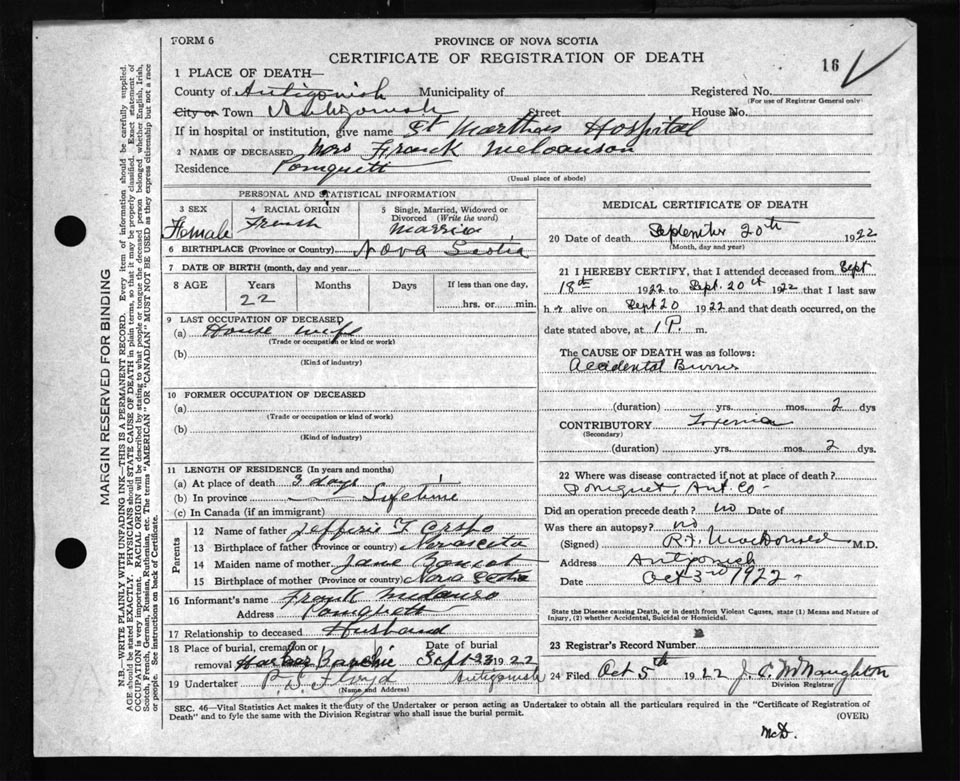 FORM 6
PROVINCE OF NOVA SCOTIA
CERTIFICATE OF REGISTRATION OF DEATH
16
1 PLACE OF DEATH—
County of Antigonish Municipality of Registered No.
(For use of Registrar General only)
City or Town Antigonish Street House No.
If in hospital or institution, give name St Marthas Hospital
2 NAME OF DECEASED Mrs Frank
Residence
(Usual place of abode)
PERSONAL AND STATISTICAL INFORMATION
3 SEX Female
4 RACIAL ORIGIN French
5 Single, Married, Widowed or Divorced (Write the word) Married
6 BIRTHPLACE (Province or Country) Nova Scotia
7 DATE OF BIRTH (month, day and year)
8 AGE Years Months Days If less than one day,
22 hrs. or min.
9 LAST OCCUPATION OF DECEASED
(a) House wife
(Trade or occupation or kind or work)
(b)
(Kind of industry)
10 FORMER OCCUPATION OF DECEASED
(a)
(Trade or occupation or kind of work)
(b)
(Kind of industry)
11 LENGTH OF RESIDENCE (In years and months)
(a) At place of death 3 days
(b) In province Lifetime
(c) In Canada (if an immigrant)
Parents
12 Name of father
13 Birthplace of father (Province or country) Nova scotia
14 Maiden name of mother Jane
15 Birthplace of mother (Province or country) Nova Scotia
16 Informant's name Frank
Address
17 Relationship to deceased Husband
18 Place of burial, cremation or removal Date of burial
Sept 23 1922
19 Undertaker P. S. Floyd Antigonish
(Name and Address)
MEDICAL CERTIFICATE OF DEATH
20 Date of death September 20th 1922
(Month, day and year)
21 I HEREBY CERTIFY, that I attended deceased from Sept
18th 1922 to Sept. 20th 1922 that I last saw
her alive on Sept 20 1922 and that death occurred, on the
date stated above, at 1 P. m.
The CAUSE OF DEATH was as follows:
Accidental Burns
(duration) yrs. mos. 2 dys
CONTRIBUTORY Toxemia
(Secondary)
(duration) yrs. mos. 2 dys.
22 Where was disease contracted if not at place of death?
Pomquet, Ant. Co.
Did an operation precede death? no Date of
Was there an autopsy? no
(Signed) R. F. MacDonald M.D.
Address Antigonish
Date Oct 3rd 1922
State the Disease causing Death, or in death from Violent Causes, state (1) Means and Nature of
Injury, (2) whether Accidental, Suicidal or Homicidal.
23 Registrar's Record Number
24 Filed Oct 5th 1922 J. C. McNaughton
Division Registrar
SEC. 46—Vital Statistics Act makes it the duty of the Undertaker or person acting as Undertaker to obtain all the particulars required in the "Certificate of Registration of
Death" and to fyle the same with the Division Registrar who shall issue the burial permit.
(OVER)
McD.
MARGIN RESERVED FOR BINDING
N.B.—WRITE PLAINLY WITH UNFADING INK—THIS IS A PERMANENT RECORD. Every item of information should be carefully supplied.
AGE should be stated EXACTLY. PHYSICIANS should STATE CAUSE OF DEATH in plain terms, so that it may be properly classified. Exact statement of
OCCUPATION is very important. RACIAL ORIGIN will be described by stating to what people or tongue the deceased person belonged whether English, Irish,
Scotch, French, German, Russian, Ruthenian, etc. The terms "AMERICAN" OR "CANADIAN" MUST NOT BE USED as they express citizenship but not a race
or people. See instructions on back of Certificate.